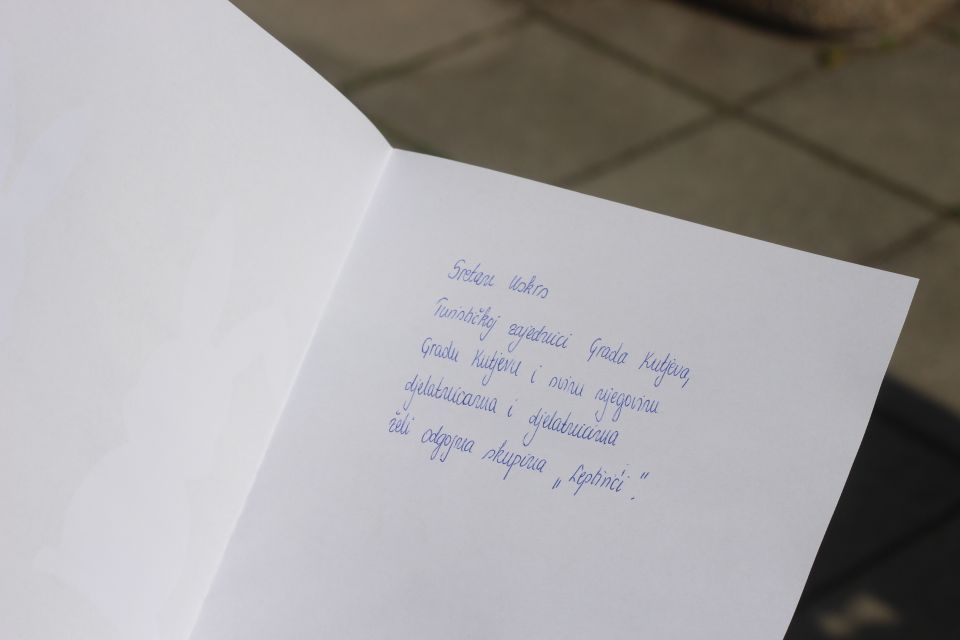 Sretan Uskrs
Turističkoj zajednici Grada Kutjeva,
Gradu Kutjevu i svim njegovim
djelatnicama i djelatnicima
želi odgojna skupina „Leptirići".